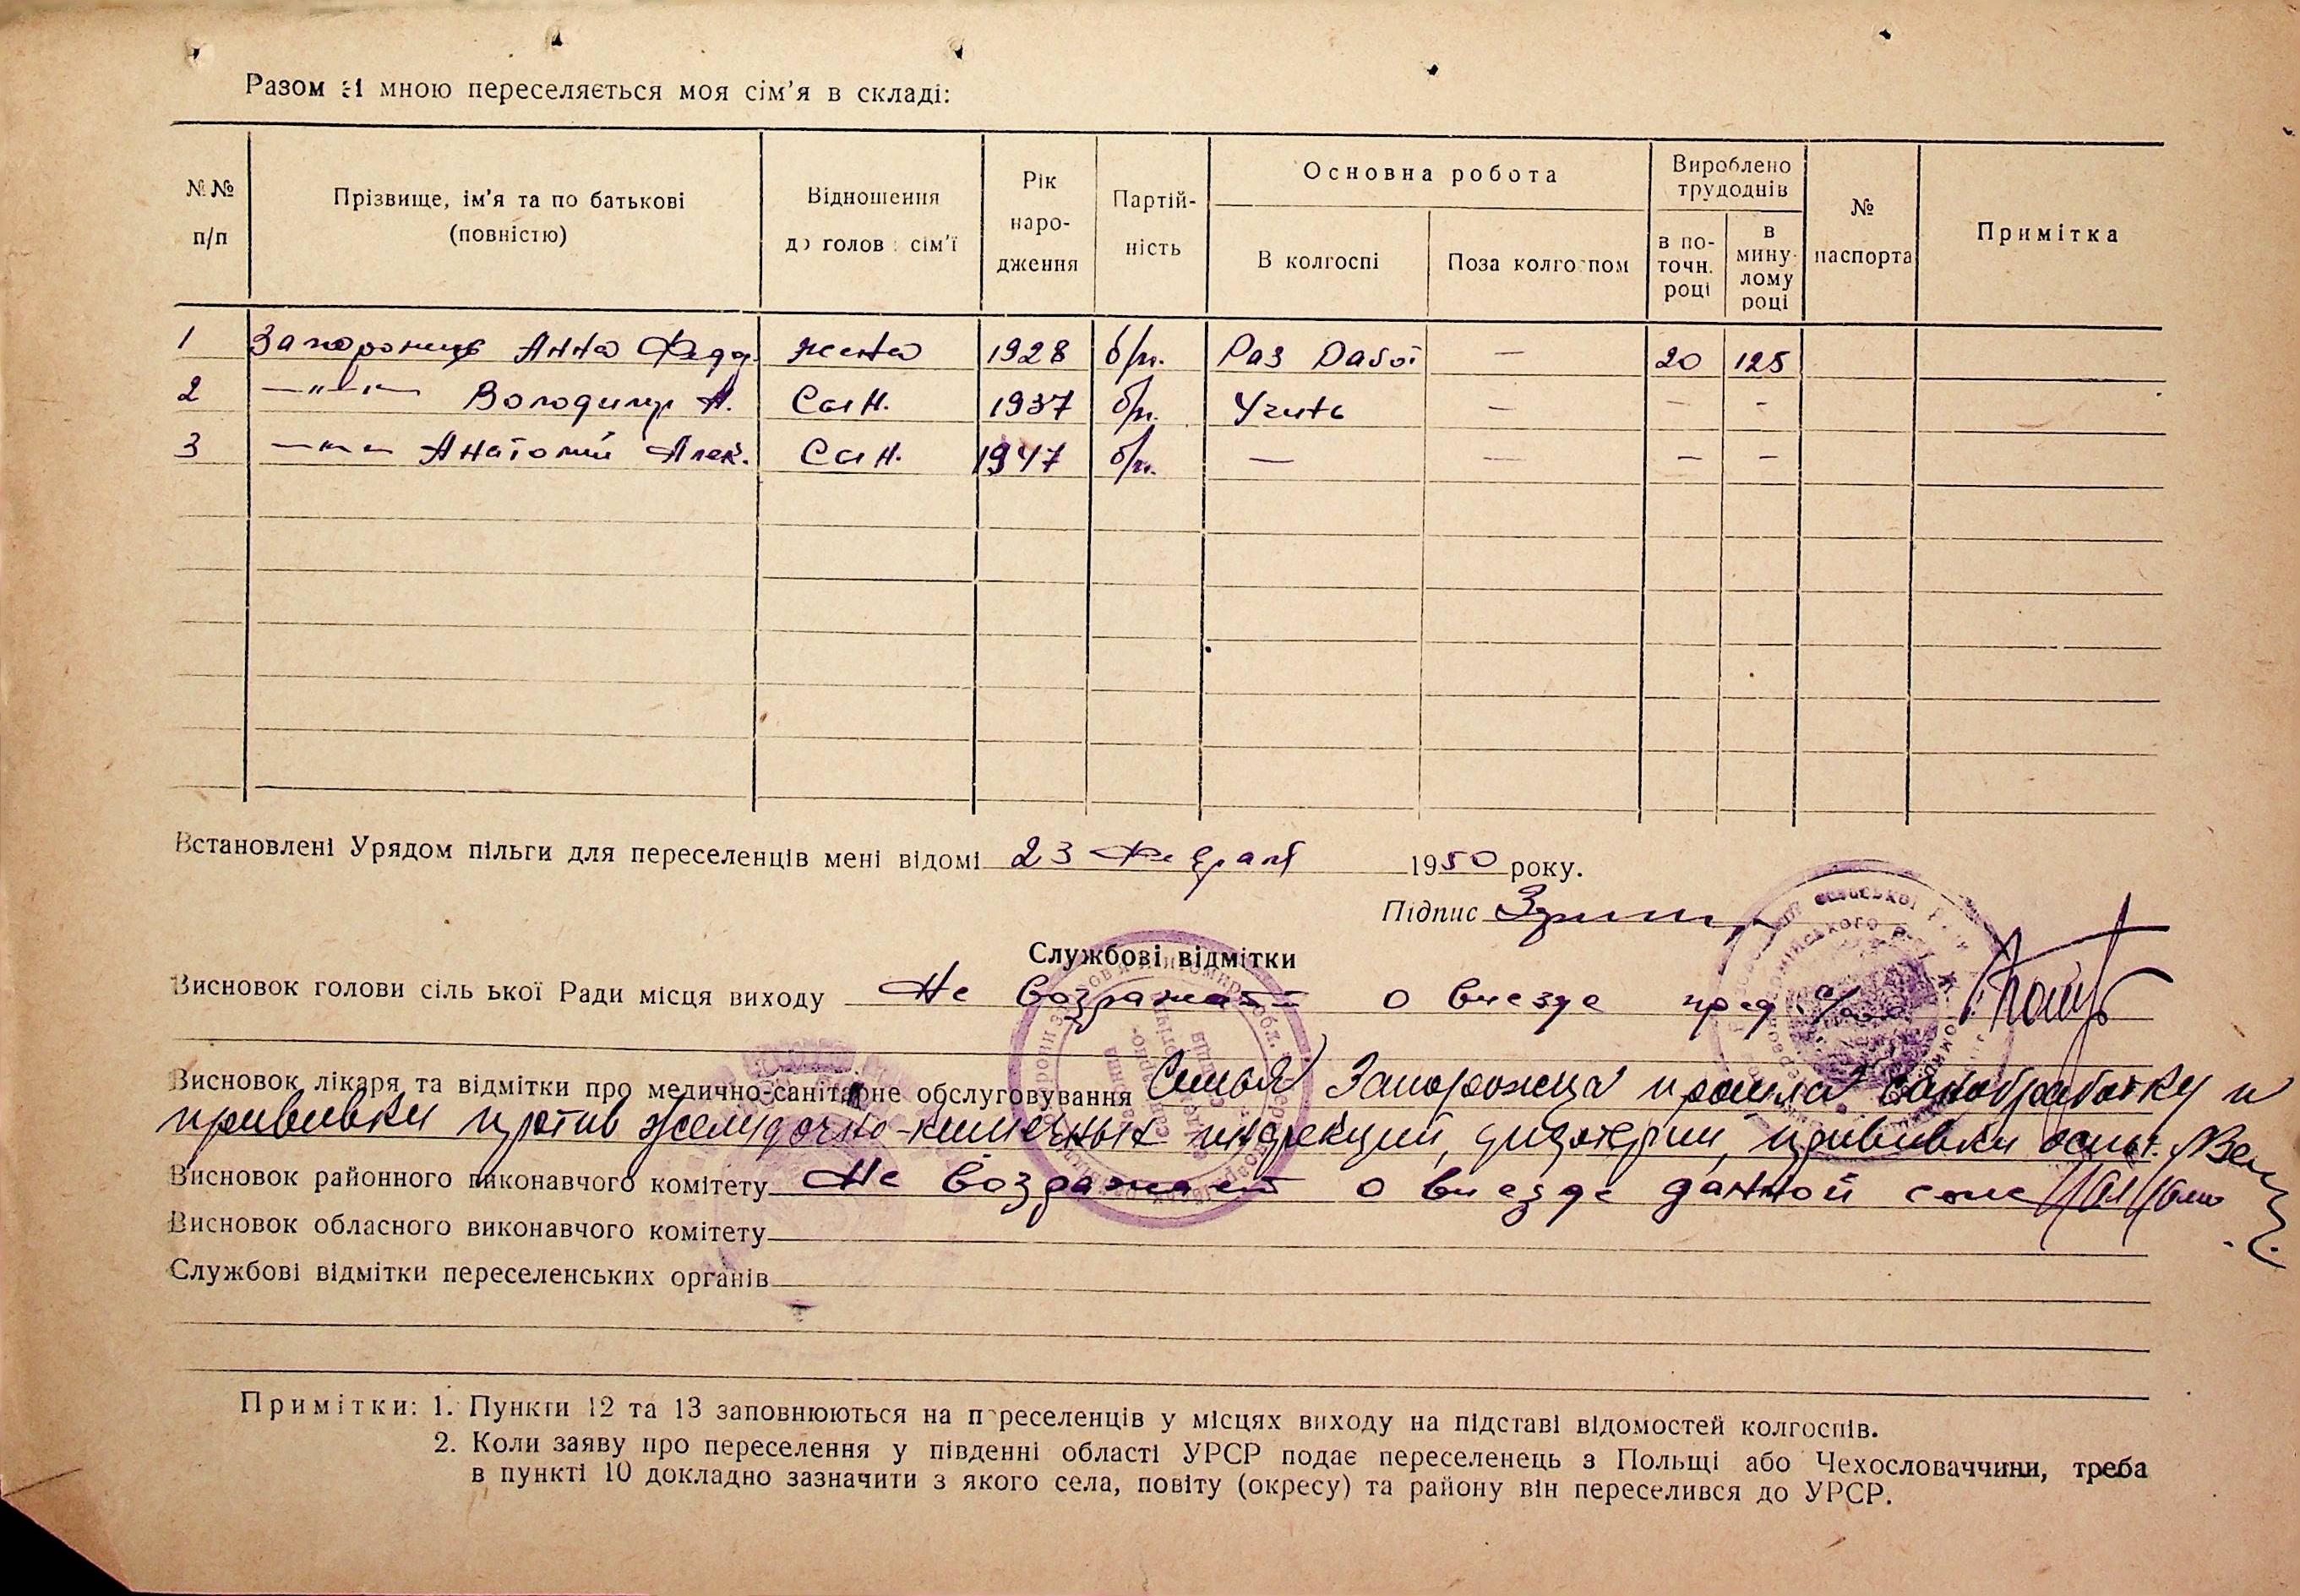 Разом зі мною переселяється моя сім'я в складі:
№№ п/п
Прізвище, ім'я та по батькові (повністю)
Відношення до голов сім'ї
Рік народження
Партійність
Основна робота
В колгоспі
Поза колгоспом
Вироблено трудоднів
в поточн. році
в минулому році
№ паспорта
Примітка
1 Запорожець Анна Фед. жена 1928 б/п. Раз Рабої — 20 125
2 —"— Володимир А. Сын. 1937 б/п. Учить — — -
3 —"— Анатолий Алек. Сын. 1947 б/п. — — — —
Встановлені Урядом пільги для переселенців мені відомі 23 Февраля 1950 року.
Підпис
Службові відмітки
Висновок голови сільської Ради місця виходу Не возражает о выезде пред. с/рады
Висновок лікаря та відмітки про медично-санітарне обслуговування Семья Запорожеца прошла санобработку и
прививки против желудочно-кишечных инфекций, дизентерии, прививки оспы.
Висновок районного виконавчого комітету Не возражает о выезде данной семьи
Висновок обласного виконавчого комітету
Службові відмітки переселенських органів
Примітки: 1. Пункти 12 та 13 заповнюються на переселенців у місцях виходу на підставі відомостей колгоспів.
2. Коли заяву про переселення у південні області УРСР подає переселенець з Польщі або Чехословаччини, треба
в пункті 10 докладно зазначити з якого села, повіту (окресу) та району він переселився до УРСР.